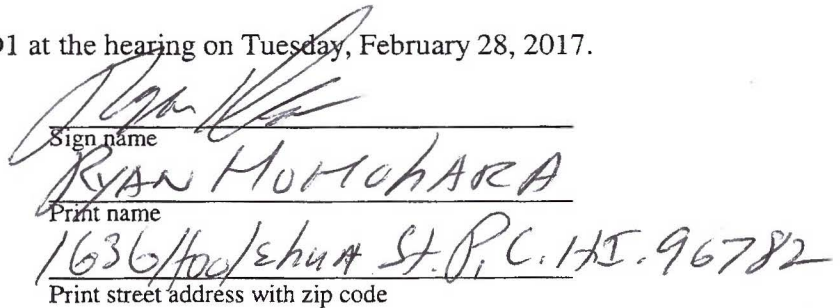 1 at the hearing on Tuesday, February 28, 2017.
Ryan
Sign name
RYAN MOMOHARA
Print name
1636 Hoolehua St. P.C. HI. 96782
Print street address with zip code